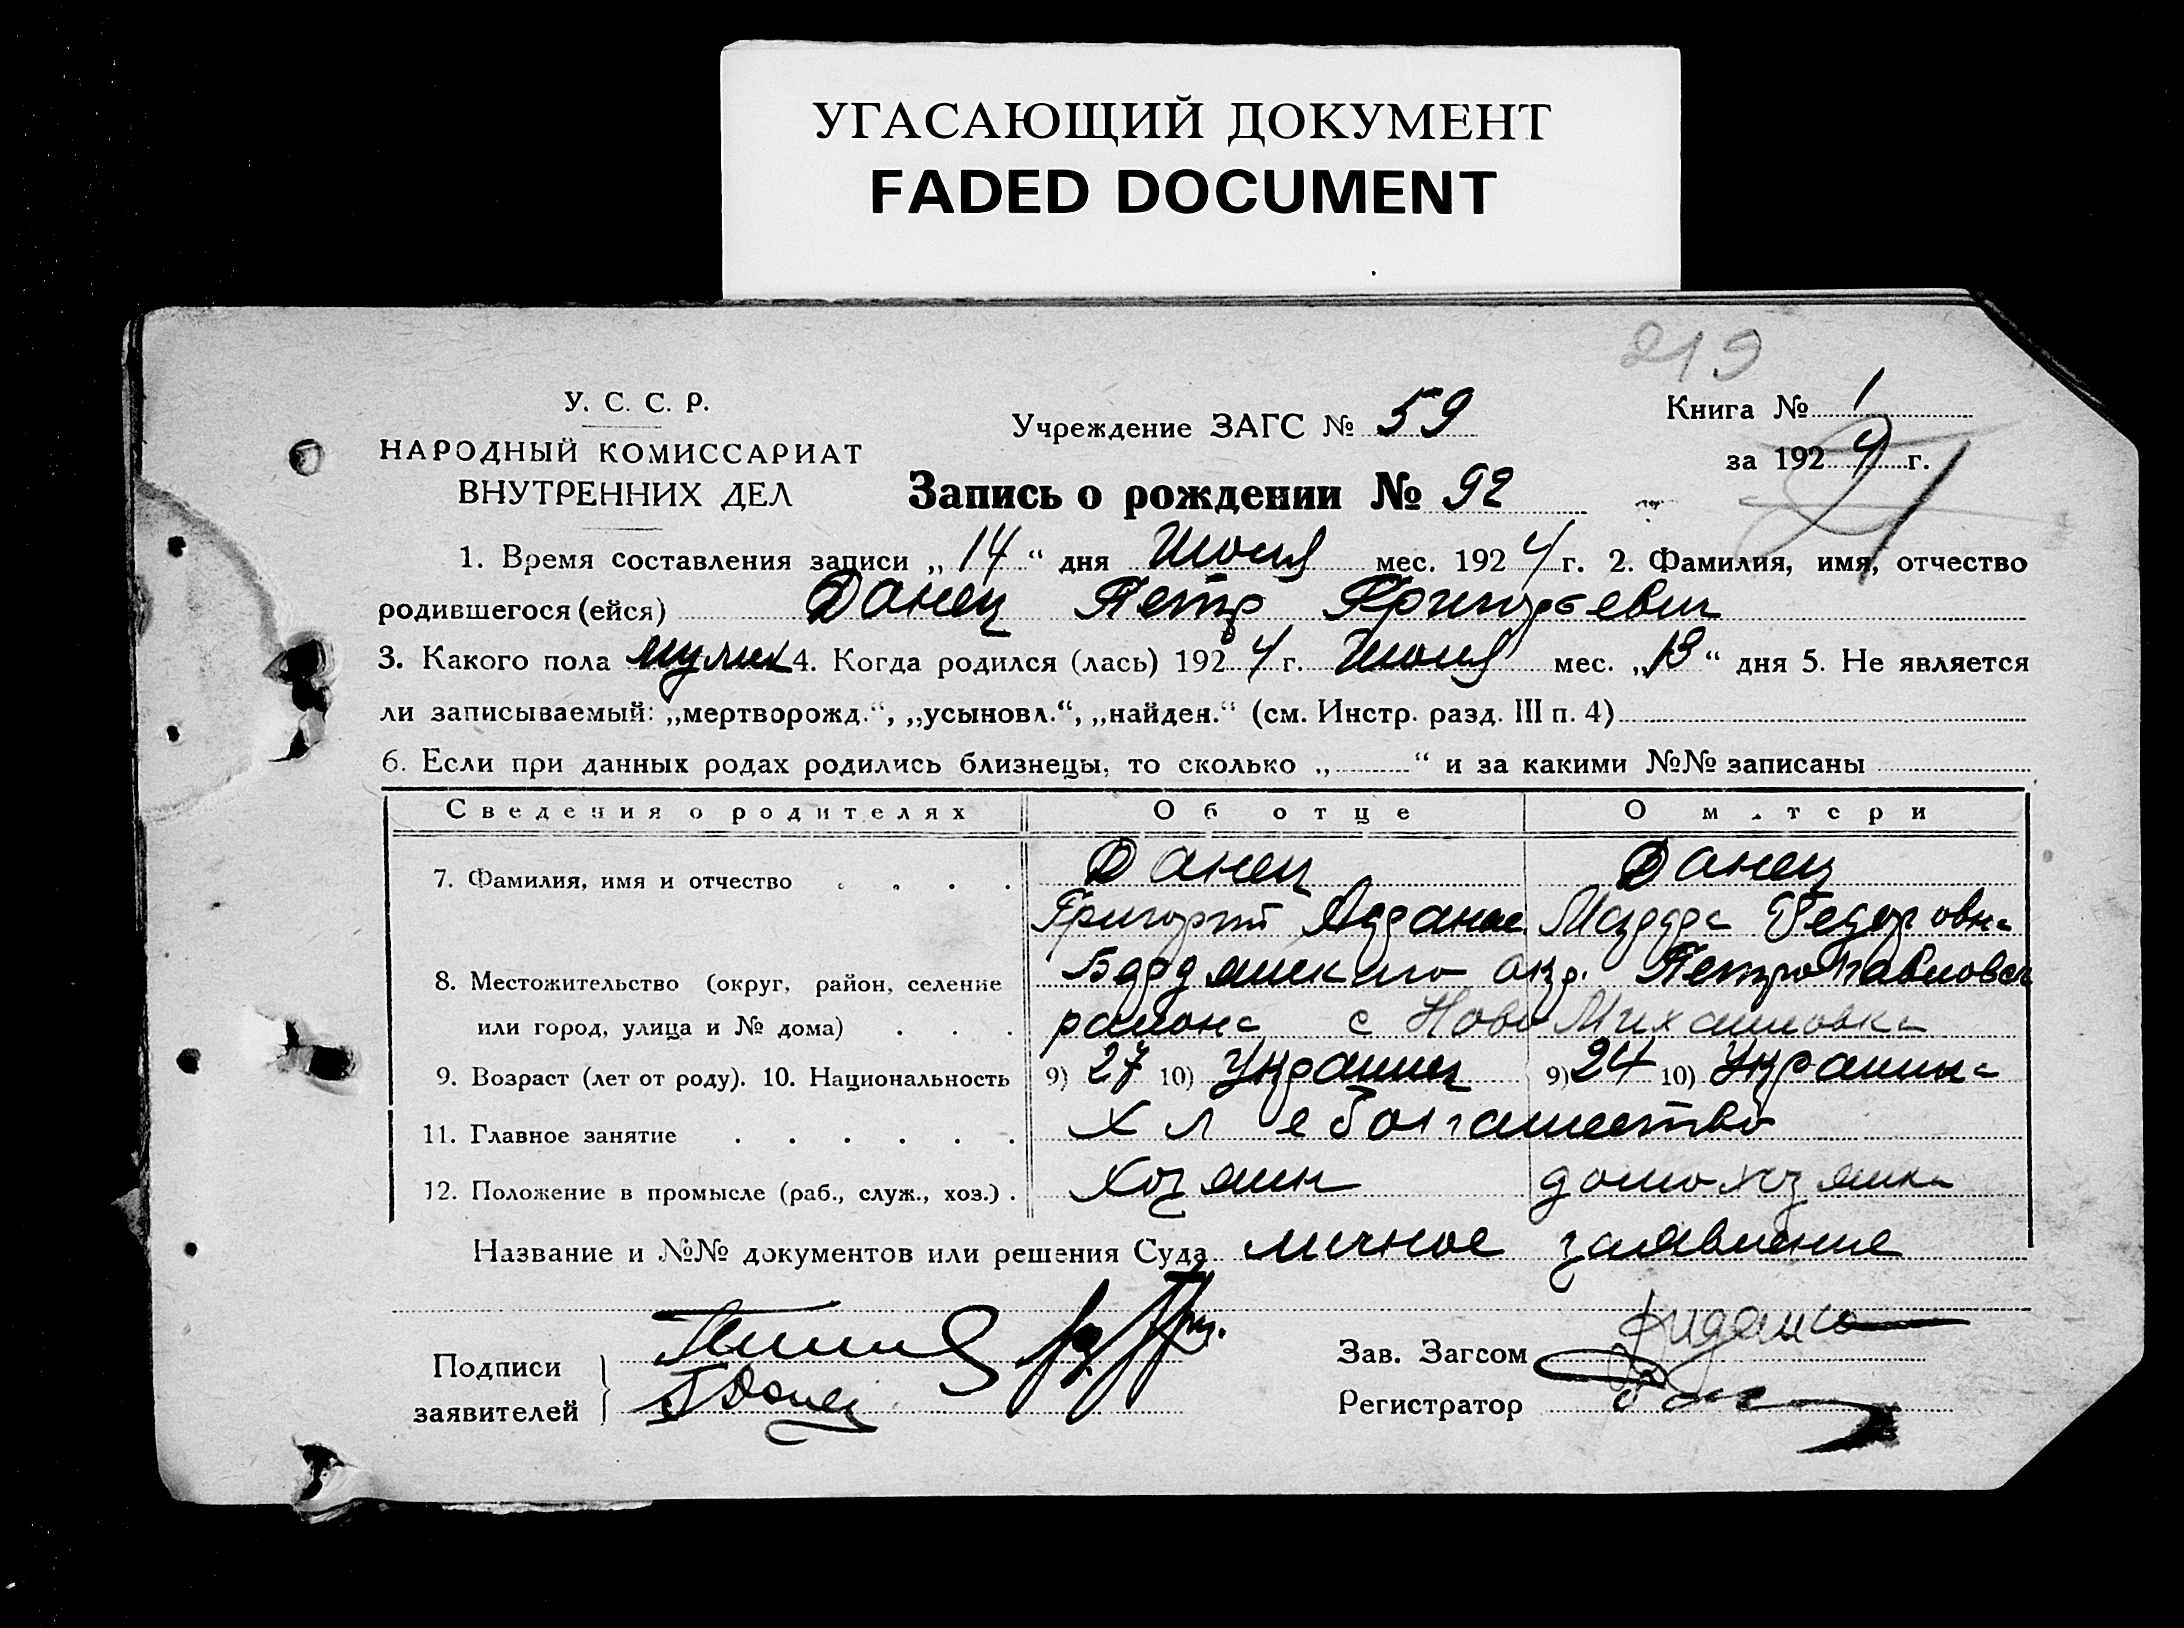 УГАСАЮЩИЙ ДОКУМЕНТ
FADED DOCUMENT
219
У. С. С. Р.
НАРОДНЫЙ КОМИССАРИАТ
ВНУТРЕННИХ ДЕЛ
Учреждение ЗАГС № 59
Книга № 1
за 1924 г.
Запись о рождении № 92
1. Время составления записи „14“ дня Июня мес. 1924 г. 2. Фамилия, имя, отчество
родившегося (ейся) Данец Петр Григорьевич
3. Какого пола мужск 4. Когда родился (лась) 1924 г. Июня мес. „13“ дня 5. Не является
ли записываемый: „мертворожд.“, „усыновл.“, „найден.“ (см. Инстр. разд. III п. 4)
6. Если при данных родах родились близнецы, то сколько „ “ и за какими №№ записаны
Сведения о родителях Об отце О матери
7. Фамилия, имя и отчество Данец Данец
Григорий Афанас Федоровна
8. Местожительство (округ, район, селение Бердянского окр. Петропавловск
или город, улица и № дома) района с Ново Михайловка
9. Возраст (лет от роду). 10. Национальность 9) 27 10) Украинец 9) 24 10) Украинка
11. Главное занятие Хлебопашество
12. Положение в промысле (раб., служ., хоз.) Хозяин домохозяйка
Название и №№ документов или решения Суда личное заявление
Подписи
заявителей Г Данец
Зав. Загсом
Регистратор